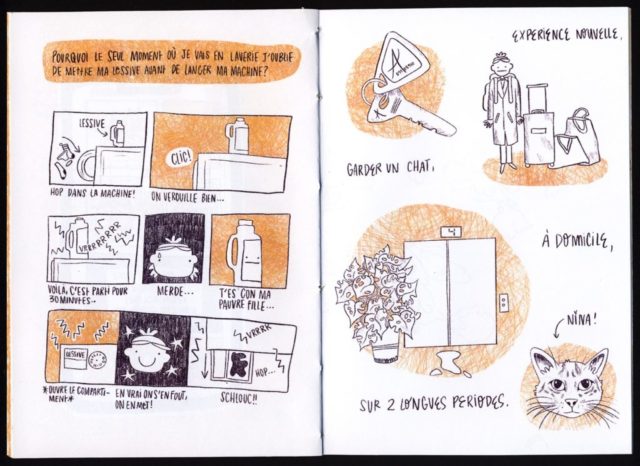 POURQUOI LE SEUL MOMENT OÙ JE VAIS EN LAVERIE J'OUBLIE
DE METTRE MA LESSIVE AVANT DE LANCER MA MACHINE?
LESSIVE
HOP DANS LA MACHINE!
CLIC!
ON VEROUILLE BIEN...
VRRRRRRR
VOILÀ, C'EST PARTI POUR
30 MINUTES..
MERDE...
T'ES CON MA
PAUVRE FILLE...
LESSIVE
*OUVRE LE COMPARTI-
MENT*
EN VRAI ON S'EN FOUT,
ON EN MET!
VRRRK
HOP...
SCHLOUC!!
EXPERIENCE NOUVELLE,
A
GARDER UN CHAT,
À DOMICILE,
NINA!
SUR 2 LONGUES PERIODES.